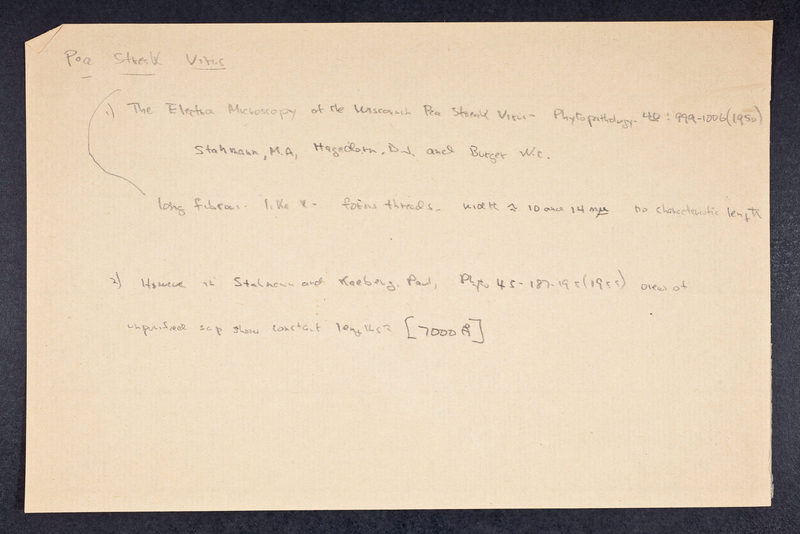 Pea Streak Virus
1) The Electron Microscopy of the Wisconsin Pea Streak Virus - Phytopathology. 40 : 999-1006 (1950)
Stahmann, M.A, Hagedorn, D.J. and Burger W.C.
long fibrous. like X - forms threads. width ≈ 10 and 14 mµ no characteristic length
2) However in Stahmann and Kaesberg, Paul, Phyto 45-187-195 (1955) of
unpurified sap show constant lengths ≈ [7000 Å]